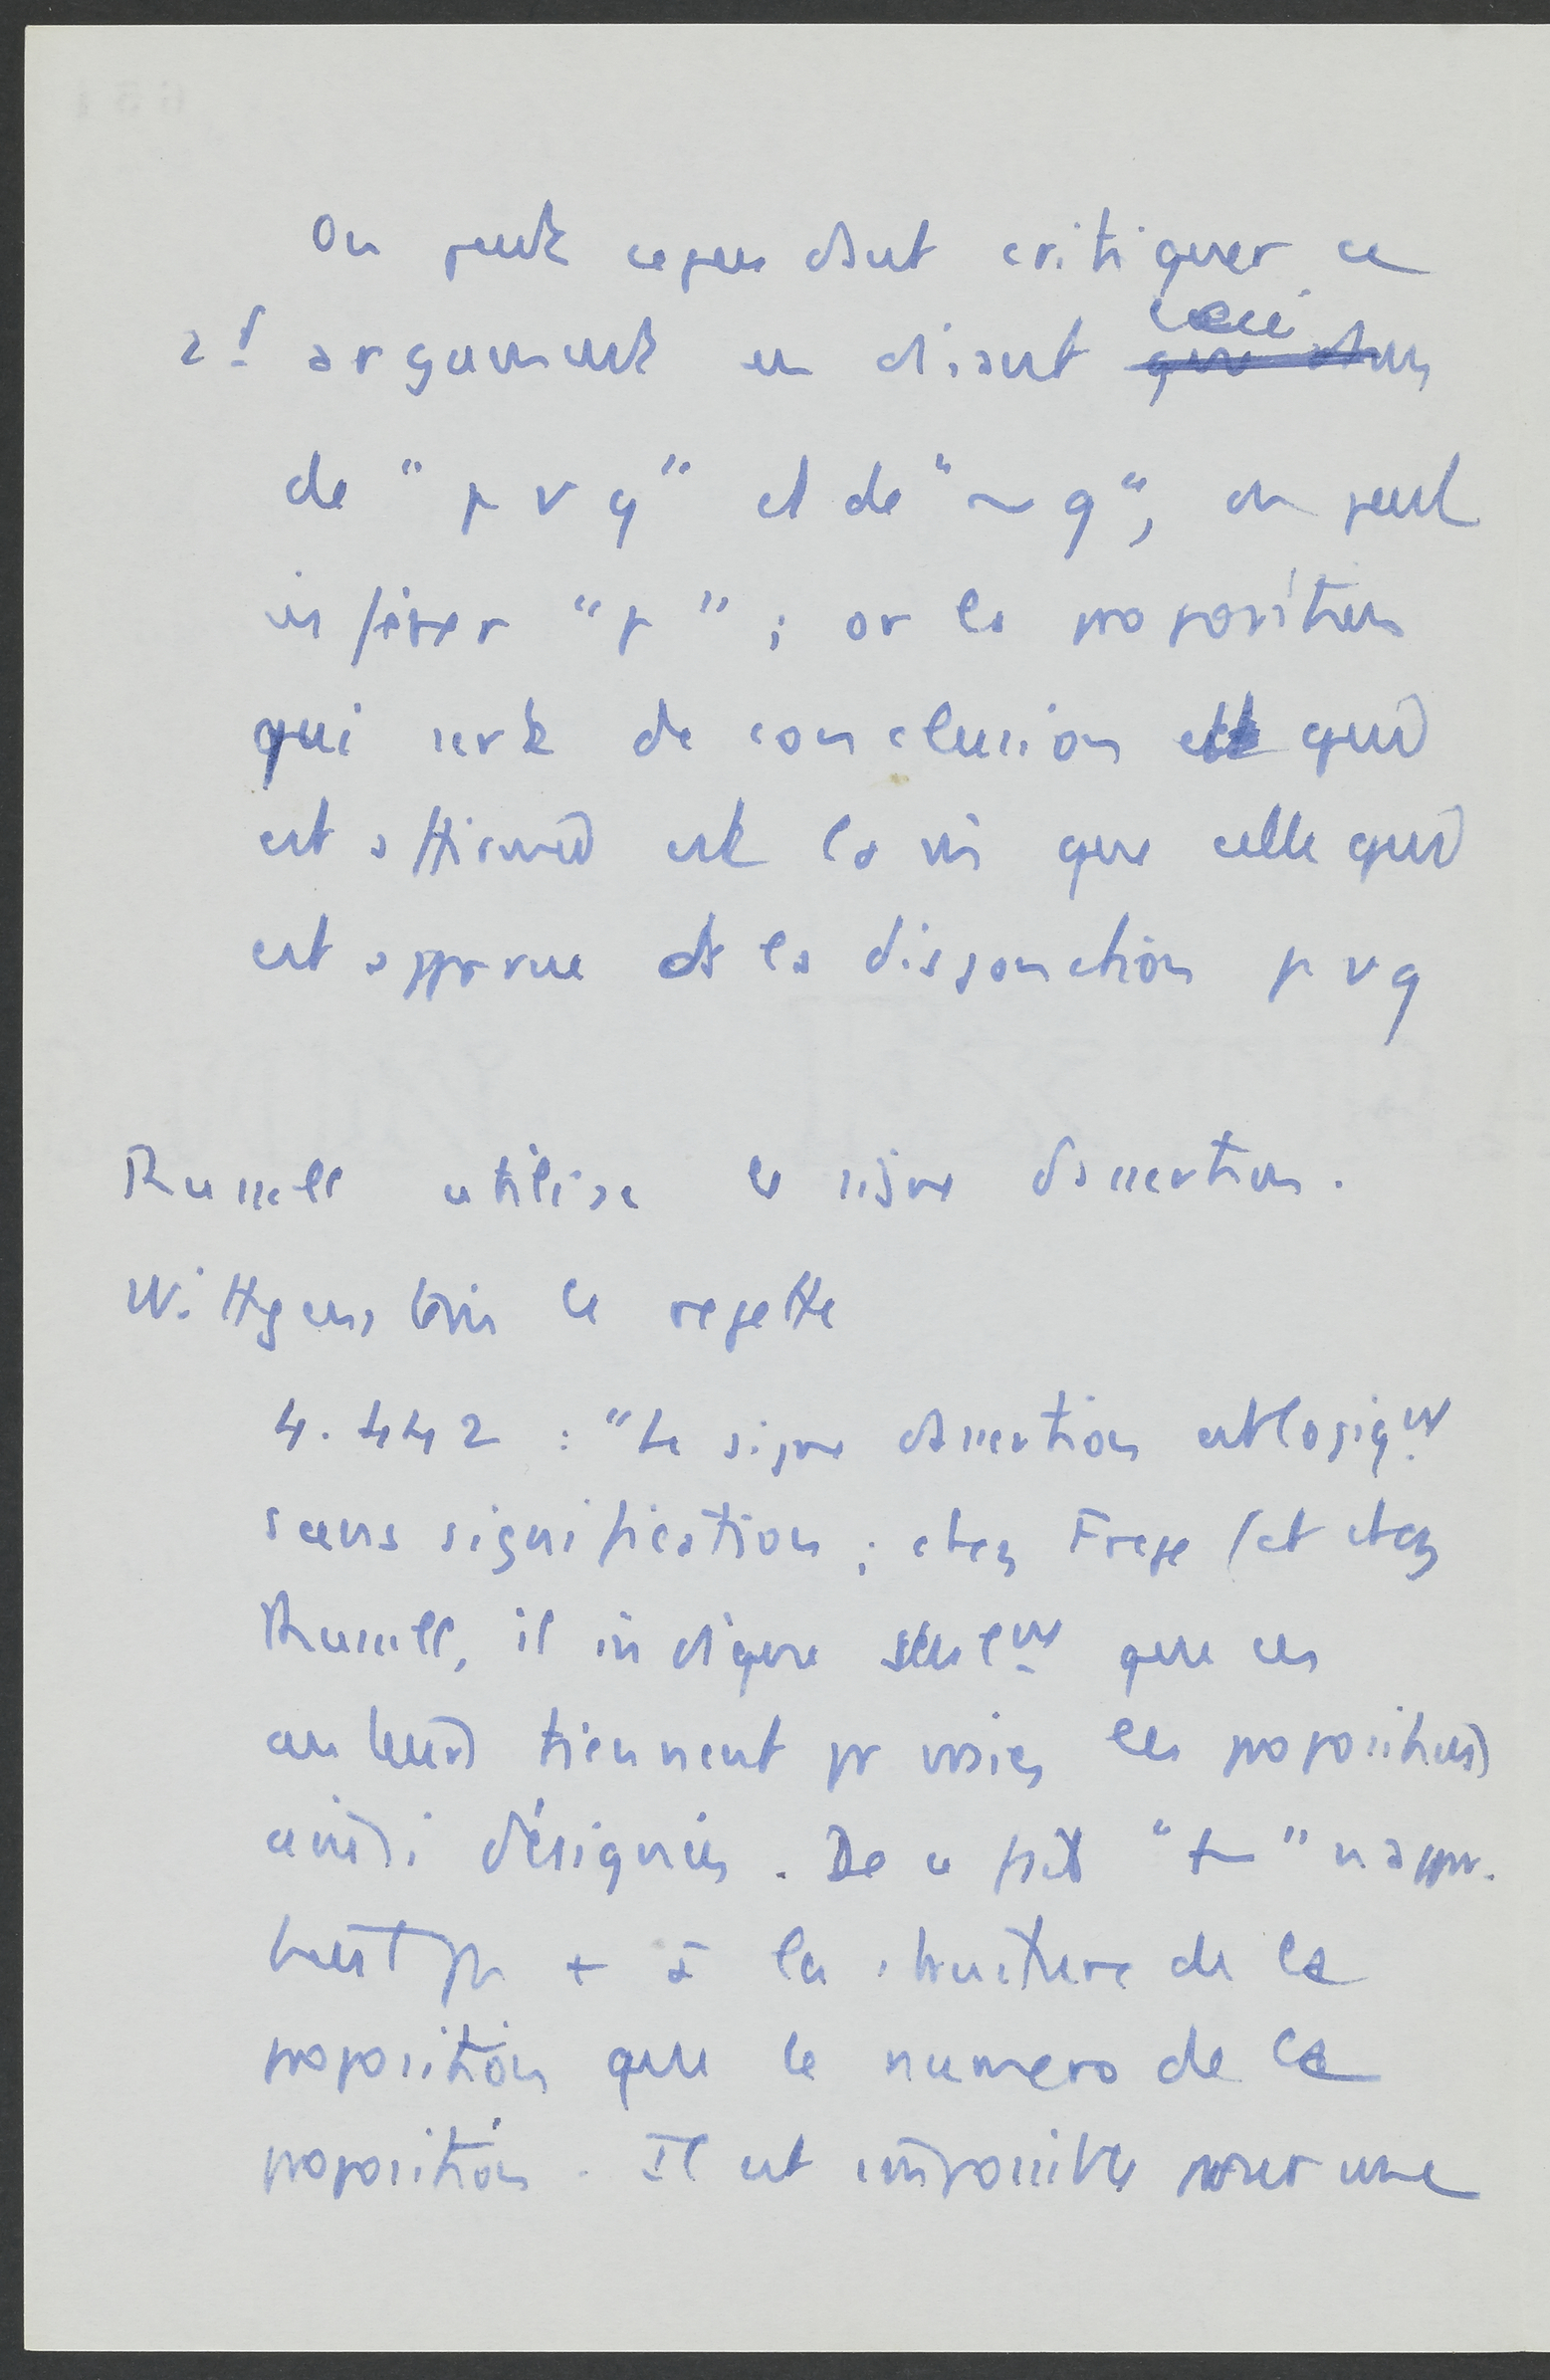 On peut cependant critiquer ce
2d argument en disant ceci
de "p v q" et de "~ q", on peut
inférer "p" ; or la proposition
qui sert de conclusion et qui
est affirmée est la m̂ que celle qui
est apparue ds la disjonction p v q
Russell utilise le signe d'assertion.
Wittgenstein le rejette
4.442 : "Le signe d'assertion est logiqut
sans signification ; chez Frege (et chez
Russell, il indique seulemt que ces
auteurs tiennent pr vraies les propositions
ainsi désignées. De ce fait "⊢" n'appar.
tient pas + à la structure de la
proposition que le numero de la
proposition. Il est impossible pour une